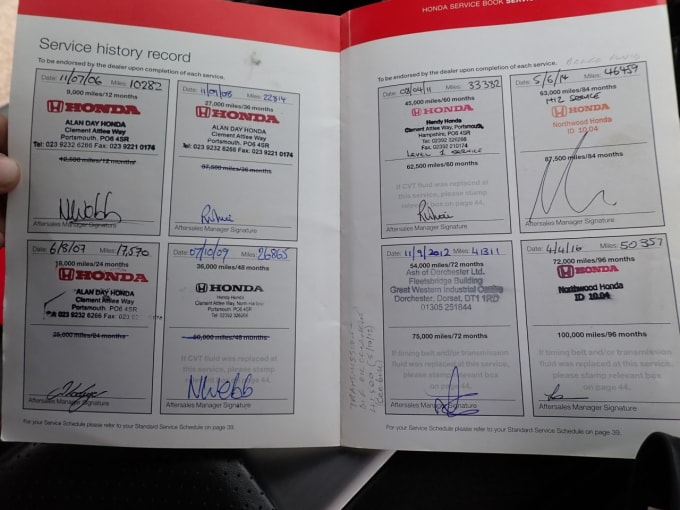 HONDA SERVICE BOOK SERV
Service history record
To be endorsed by the dealer upon completion of each service.
Date: 11/07/06 Miles: 10282
9,000 miles/12 months
HONDA
ALAN DAY HONDA
Clement Attlee Way
Portsmouth. PO6 4SR
Tel: 023 9232 6266 Fax: 023 9221 0174
12,500 miles/12 months
NWebb
Aftersales Manager Signature
Miles: 22814
27,000 miles/36 months
HONDA
ALAN DAY HONDA
Clement Attlee Way
Portsmouth. PO6 4SR
Tel: 023 9232 6266 Fax: 023 9221 0174
37,500 miles/36 months
Aftersales Manager Signature
Date: 6/8/07 Miles: 17,570
18,000 miles/24 months
HONDA
ALAN DAY HONDA
Clement Attlee Way
Portsmouth. PO6 4SR
023 9232 6266 Fax: 023
25,000 miles/24 months
Aftersales Manager Signature
Date: 07/10/09 Miles: 26865
36,000 miles/48 months
HONDA
Hendy Honda
Clement Attlee Way,
Portsmouth, PO6 4SR
Tel: 02392
50,000 miles/48 months
If CVT fluid was replaced at
this service, please stamp
relevant box on page 44.
NWebb
Aftersales Manager Signature
For your Service Schedule please refer to your Standard Service Schedule on page 39.
To be endorsed by the dealer upon completion of each service.
Miles: 33332
45,000 miles/60 months
HONDA
Hendy Honda
Clement Attlee Way, Portsmouth,
Hampshire, PO6 4SR
Tel: 02392 326266
Fax: 02392 210174
LEVEL 1 SERVICE
62,500 miles/60 months
If CVT fluid was replaced at
this service, please stamp
relevant box on page 44.
Aftersales Manager Signature
Date: 5/6/14 Miles: 46459
63,000 miles/84 months
SERVICE
HONDA
Northwood Honda
ID 10.04
87,500 miles/84 months
Aftersales Manager Signature
Date: 11/9/2012 Miles: 41311
54,000 miles/72 months
Ash of Dorchester Ltd.
Fleetsbridge Building
Great Western Industrial Centre
Dorchester, Dorset, DT1 1RD
01305 251644
75,000 miles/72 months
If timing belt and/or transmission
fluid was replaced at this service,
please stamp relevant box
on page 44.
Aftersales Manager Signature
Date: 4/4/16 Miles: 50357
72,000 miles/96 months
HONDA
Northwood Honda
ID 10.04
100,000 miles/96 months
If timing belt and/or transmission
fluid was replaced at this service,
please stamp relevant box
on page 44.
Aftersales Manager Signature
For your Service Schedule please refer to your Standard Service Schedule on page 39.